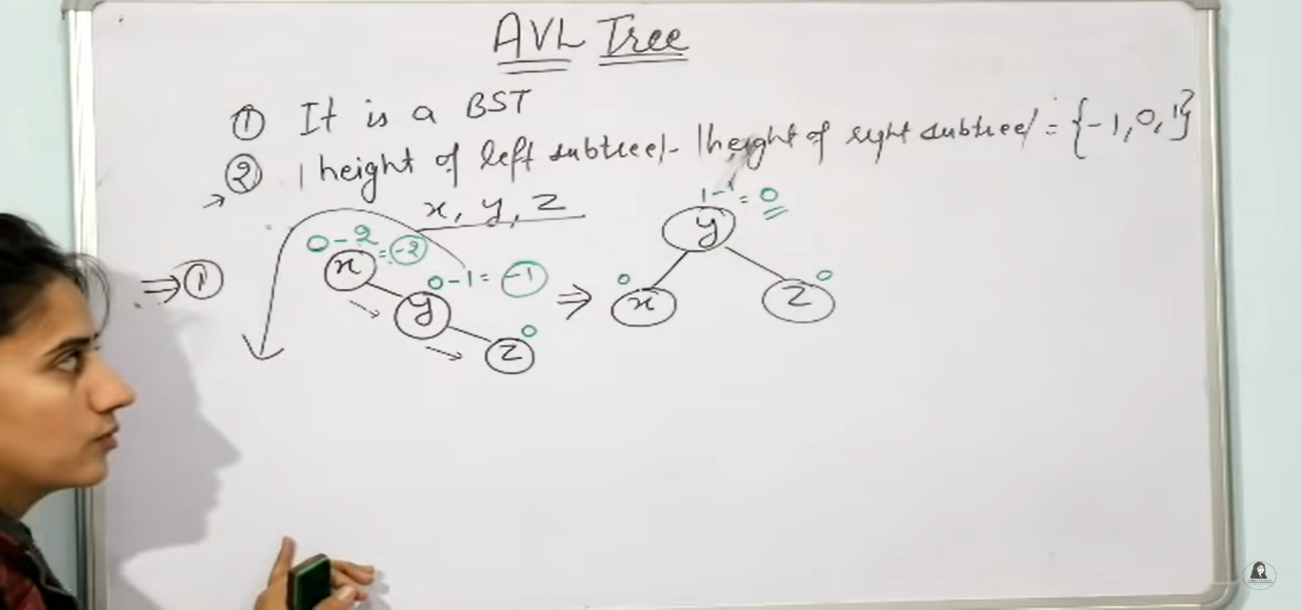 AVL Tree
① It is a BST
② |height of left subtree|- |height of right subtree| = {-1,0,1}
x, y, z
1-1=0
0-2=-2
y
⇒①
x
0-1=-1
⇒
0
0
y
x
z
0
z